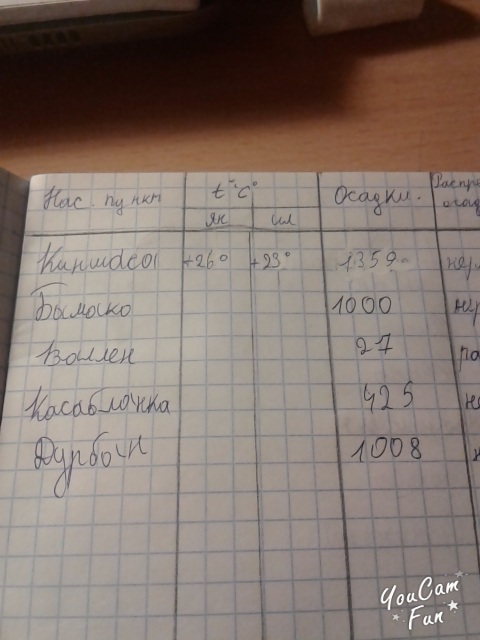 Нас. пункт t°C° Осадки. Распре
ян июл осад
Киншаса +26° +23° 1359
Бымако 1000 нер
Валлен 27 ра
Касабланка 425 не
Дурбан 1008
YouCam
Fun